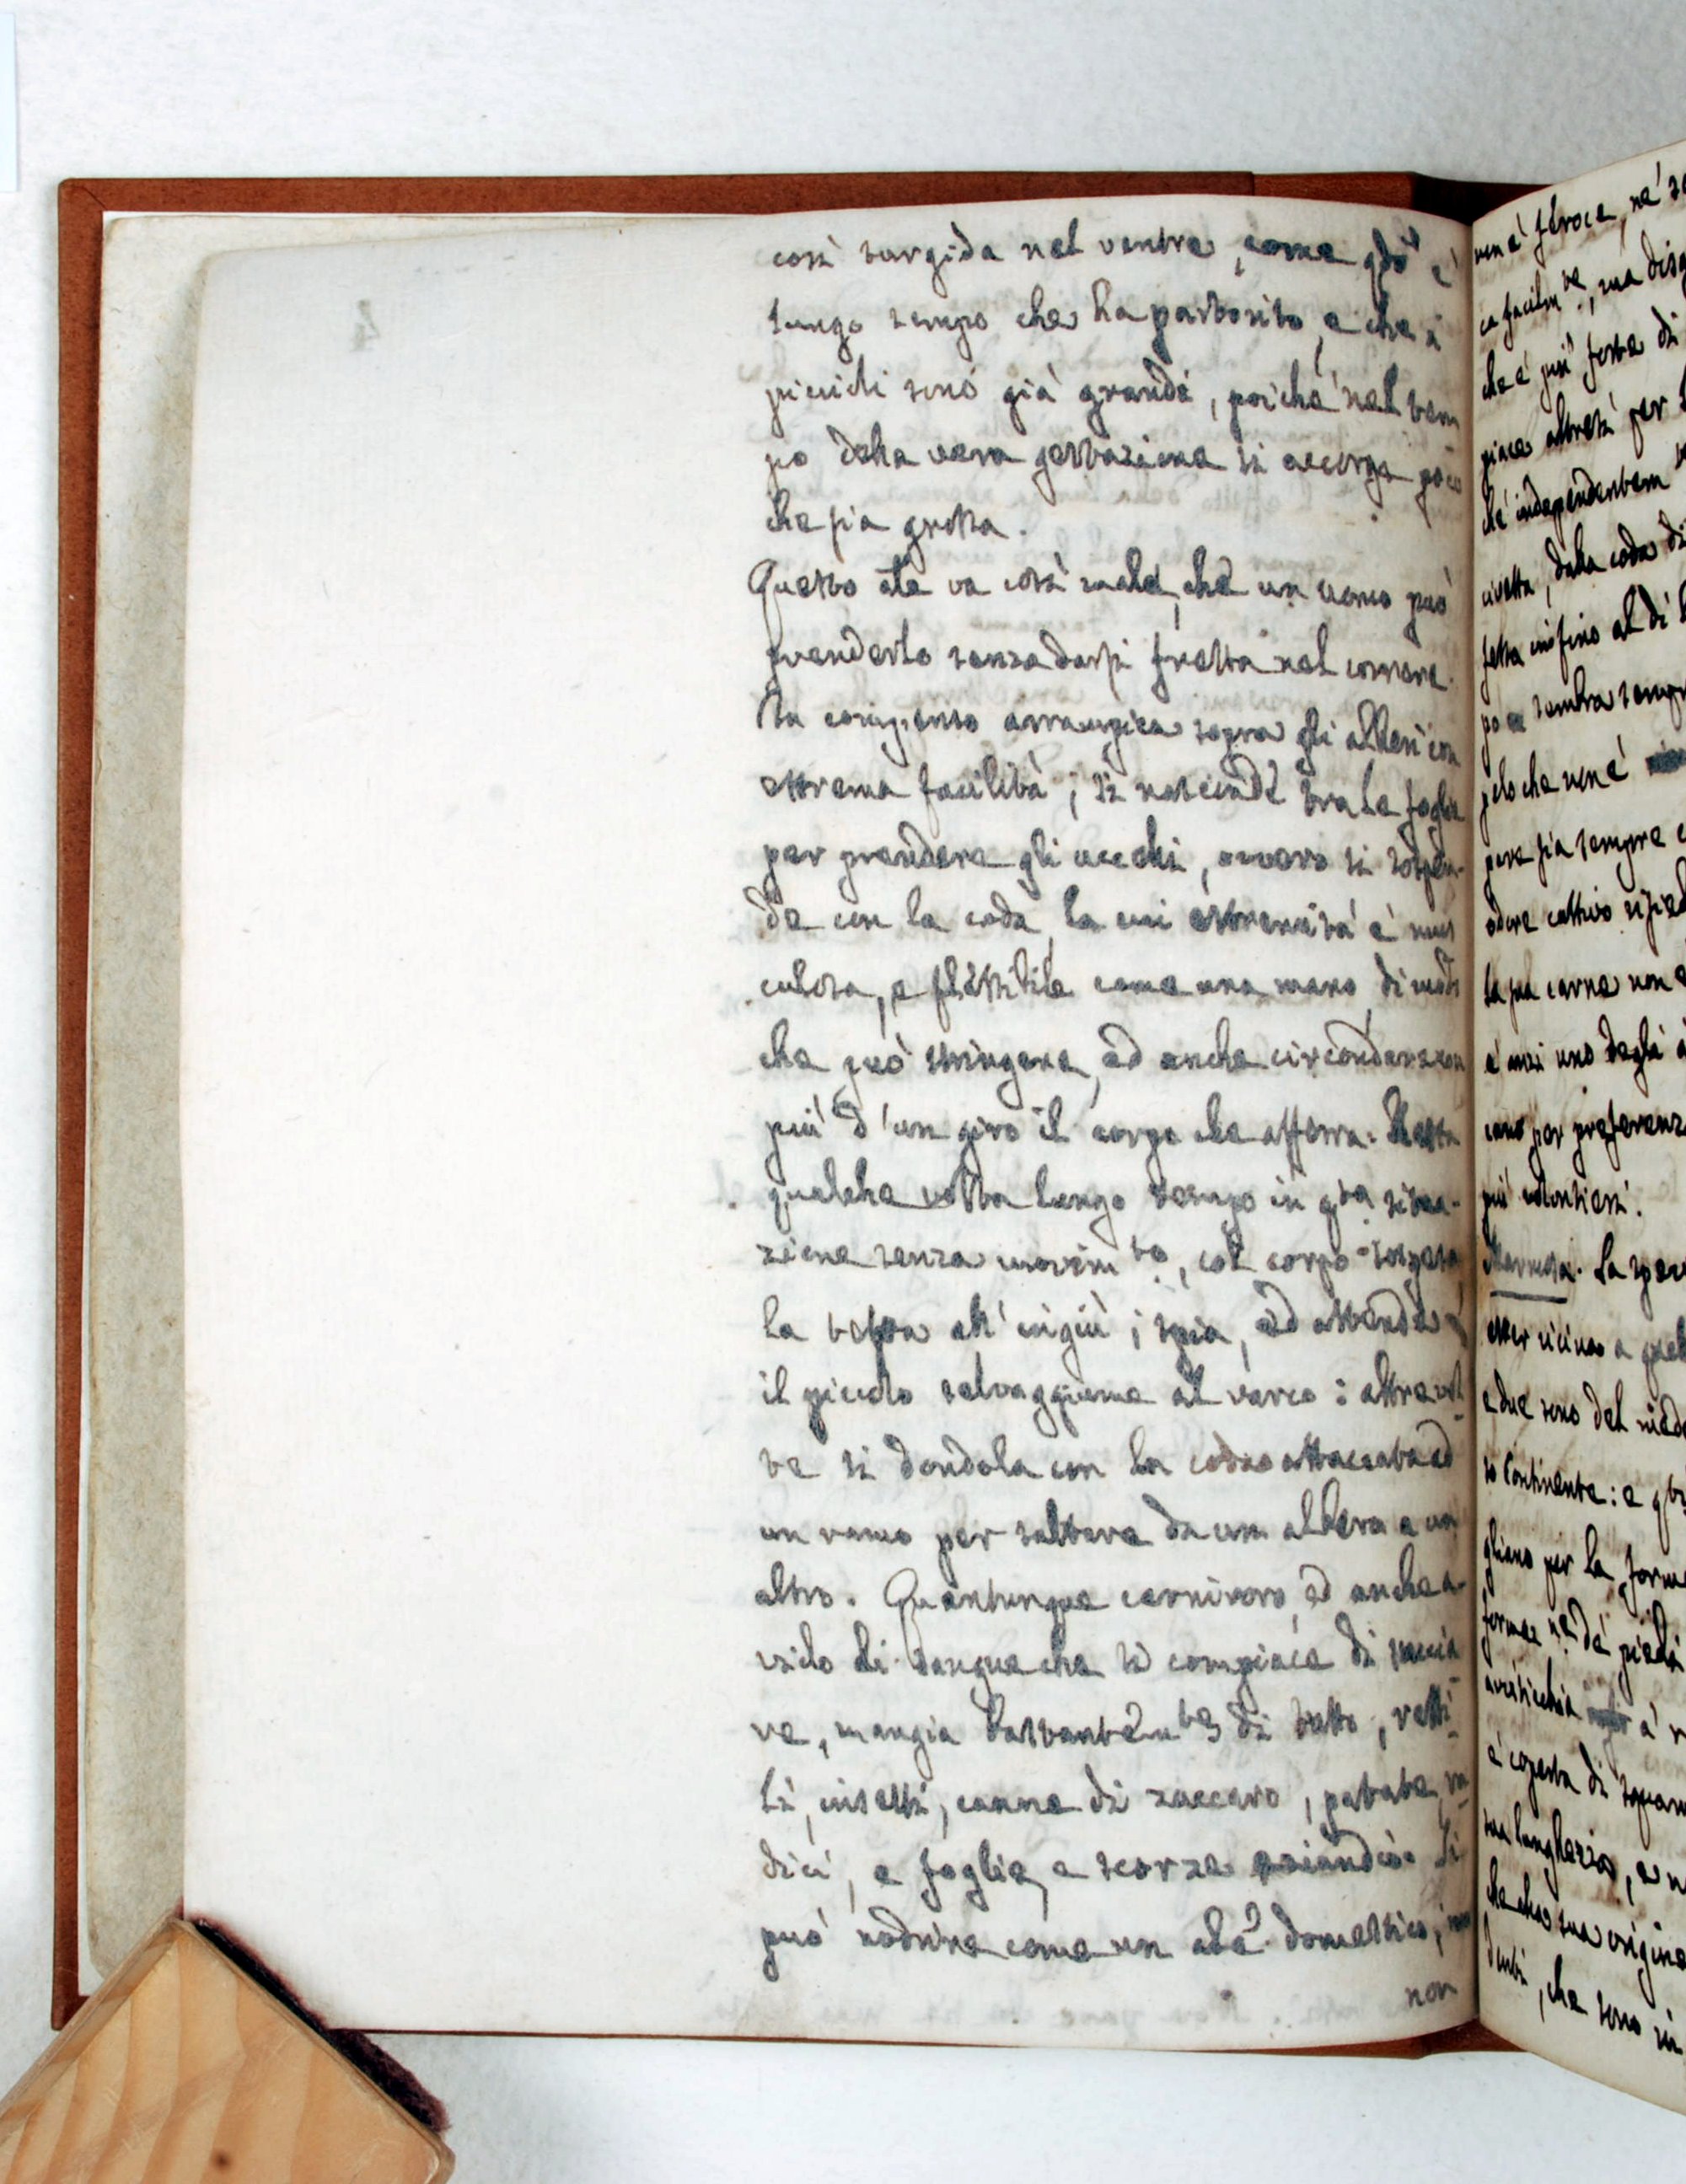 così turgida nel ventre, come qdo è
lungo tempo che ha partorito, e che i
piccioli sono già grandi, poiché nel tem
po della vera gestazione si accorge poco
che sia grossa.
Questo ale va così male, che un uomo può
prenderlo senza darsi fretta nel correre.
In compenso arrampica sopra gli alberi con
estrema facilità; si nasconde tra le foglie
per prendere gli uccelli, ovvero si sospen-
de con la coda, la cui estremità è mus
culosa, e flessibile come una mano, di modo
che può stringere, ed anche circondare con
più d'un giro il corpo che afferra. Resta
qualche volta lungo tempo in qta situa-
zione senza movimto, col corpo sospeso,
la testa all'ingiù; spia, ed attende
il picciolo selvaggiume al varco: altre vol
te si dondola con la coda attaccata ad
un ramo per saltare da un albero a un
altro. Quantunque carnivoro, ed anche a-
vido di sangue che si compiace di succia
re, mangia bastantemte di tutto, retti
li, insetti, canne di zuccaro, patate, ra
dici, e foglie, e scorze eziandio. Si
può nodrire come un ale domestico;
non
non è feroce, né
ca facilmte, ma disg
che è più forte di
piace altresì per
ché independentem
civetta, dalla coda di
testa infino al di
po sembra sempr
pelo che non è
pare sia sempre
odore cattivo
La sua carne non
è anzi uno degli
cano per preferenz
più volontieri.
Marmosa. La spec
esser vicino a quel
e due sono del med
so Continente: e
gliano per la form
forma ne dé piedi
è coperta di squam
sua lunghezza, e
che alla sua origine
denti, che sono in